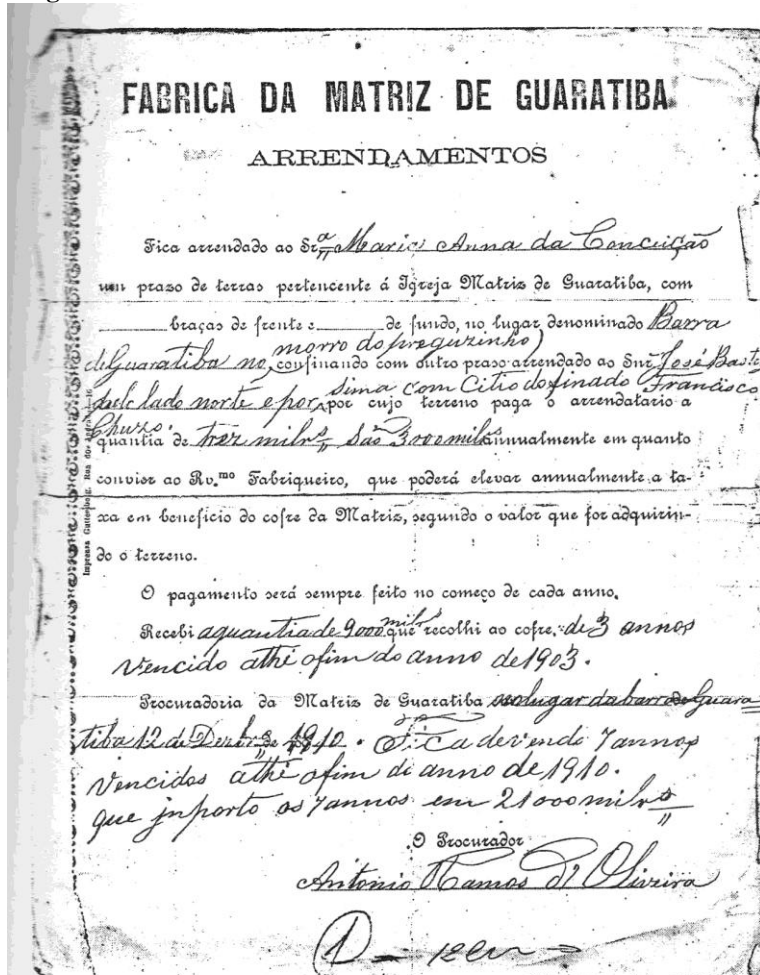 FABRICA DA MATRIZ DE GUARATIBA
ARRENDAMENTOS
Fica arrendado ao Sr.ª Maria Anna da Conceição
um praso de terras pertencente á Igreja Matriz de Guaratiba, com
braças de frente e de fundo, no lugar denominado Barra
morro do preguzinho)
de Guaratiba no, confinando com outro praso arrendado ao Snr. José Basto
sima com Citio do finado Francisco
pelo lado norte e por por cujo terreno paga o arrendatario a
Chuzo.
quantia de trez milrs são 3000 mil annualmente em quanto
convier ao Rv.mo Fabriqueiro, que poderá elevar annualmente a ta-
xa em beneficio do cofre da Matriz, segundo o valor que for adquirin-
do o terreno.
O pagamento será sempre feito no começo de cada anno.
Recebi a quantia de 9000 mil que recolhi ao cofre, de 3 annos
Vencido athé o fim do anno de 1903.
Procuradoria da Matriz de Guaratiba no lugar da barra de Guara
tiba 12 de Dezbro de 1910. Fica devendo 7 annos
Vencidos athé o fim do anno de 1910.
que inporto os 7 annos em 21000 milrs
O Procurador
Antonio Ramos d'Oliveira
Imprensa